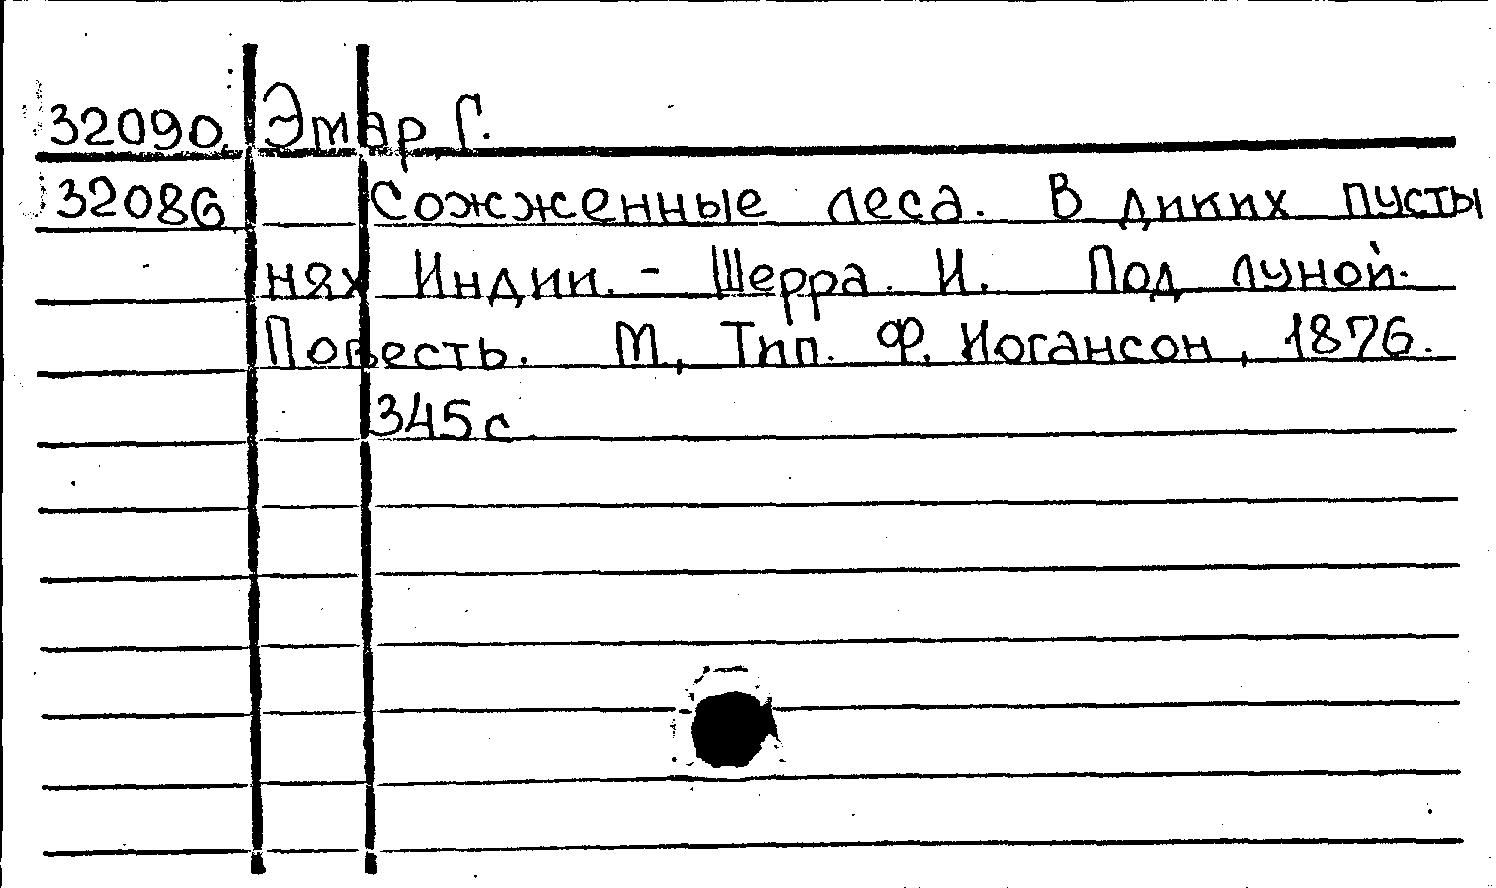 32090. Эмар Г.
32086 Сожженные леса. В диких пусты
нях Индии. - Шерра. И. Под луной.
Повесть. М, Тип. Ф. Иогансон, 1876.
345 с